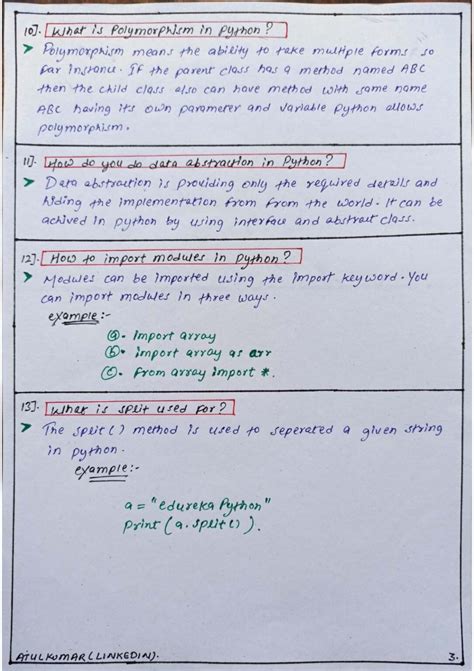 10]. What is Polymorphism in Python?
➤ Polymorphism means the ability to take multiple forms so
far instance. If the parent class has a method named ABC
then the child class also can have method with same name
ABC having its own parameter and variable Python allows
polymorphism.
11]. How do you do data abstraction in Python?
➤ Data abstraction is providing only the required details and
hiding the implementation from from the world. It can be
achived in python by using interface and abstract class.
12]. How to import modules in Python?
➤ Modules can be imported using the import keyword. You
can import modules in three ways.
example:-
ⓐ. import array
ⓑ. import array as arr
ⓒ. From array import *.
13]. What is split used for?
➤ The split() method is used to seperated a given string
in python.
example:-
a = "edureka Python"
print (a.split()).
ATUL KUMAR (LINKEDIN).
3.